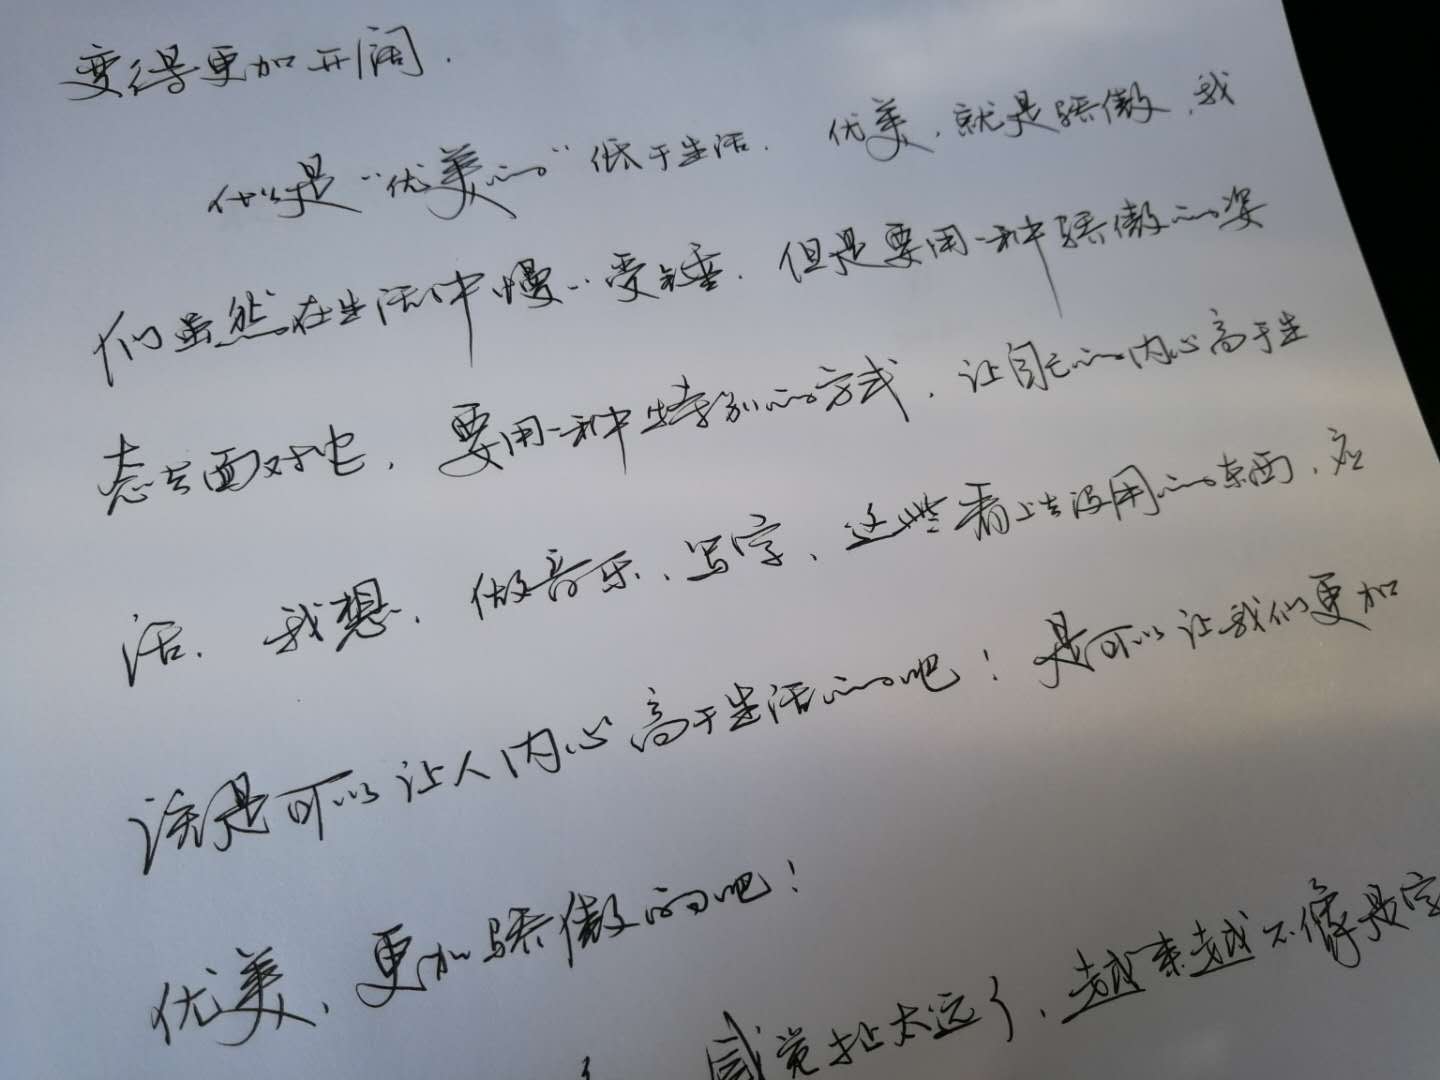 变得更加开阔.
他是“优美的”低于生活. 优美,就是骄傲,我
们虽然在生活中慢慢受锤.但是要用一种骄傲的姿
态去面对它,要用一种特别的方式,让自己的内心高于生
活.我想,做音乐、写字、这些看上去没用的东西,应
该是可以让人内心高于生活的吧!是可以让我们更加
优美,更加骄傲的吧!
感觉扯太远了,越来越不像是字